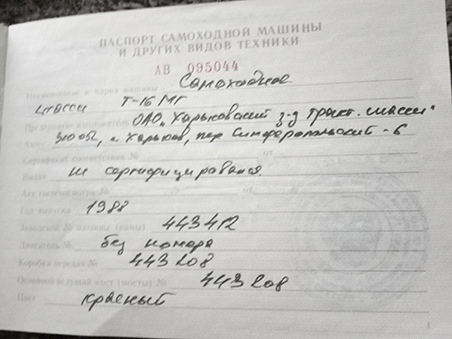 ПАСПОРТ САМОХОДНОЙ МАШИНЫ
И ДРУГИХ ВИДОВ ТЕХНИКИ
АВ 095044
Наименование и марка машины Самоходное
шасси Т-16 МГ
ОАО „Харьковский з-д тракт. шасси"
310052, г. Харьков, пер Симферопольский - 6
Сертификат соответствия №
от
Выдан не сертифицировался
Год выпуска 1988
Заводской № машины (рамы) 443412
Двигатель № без номера
Коробка передач № 443208
Основной ведущий мост (мосты) № 443208
Цвет красный
1